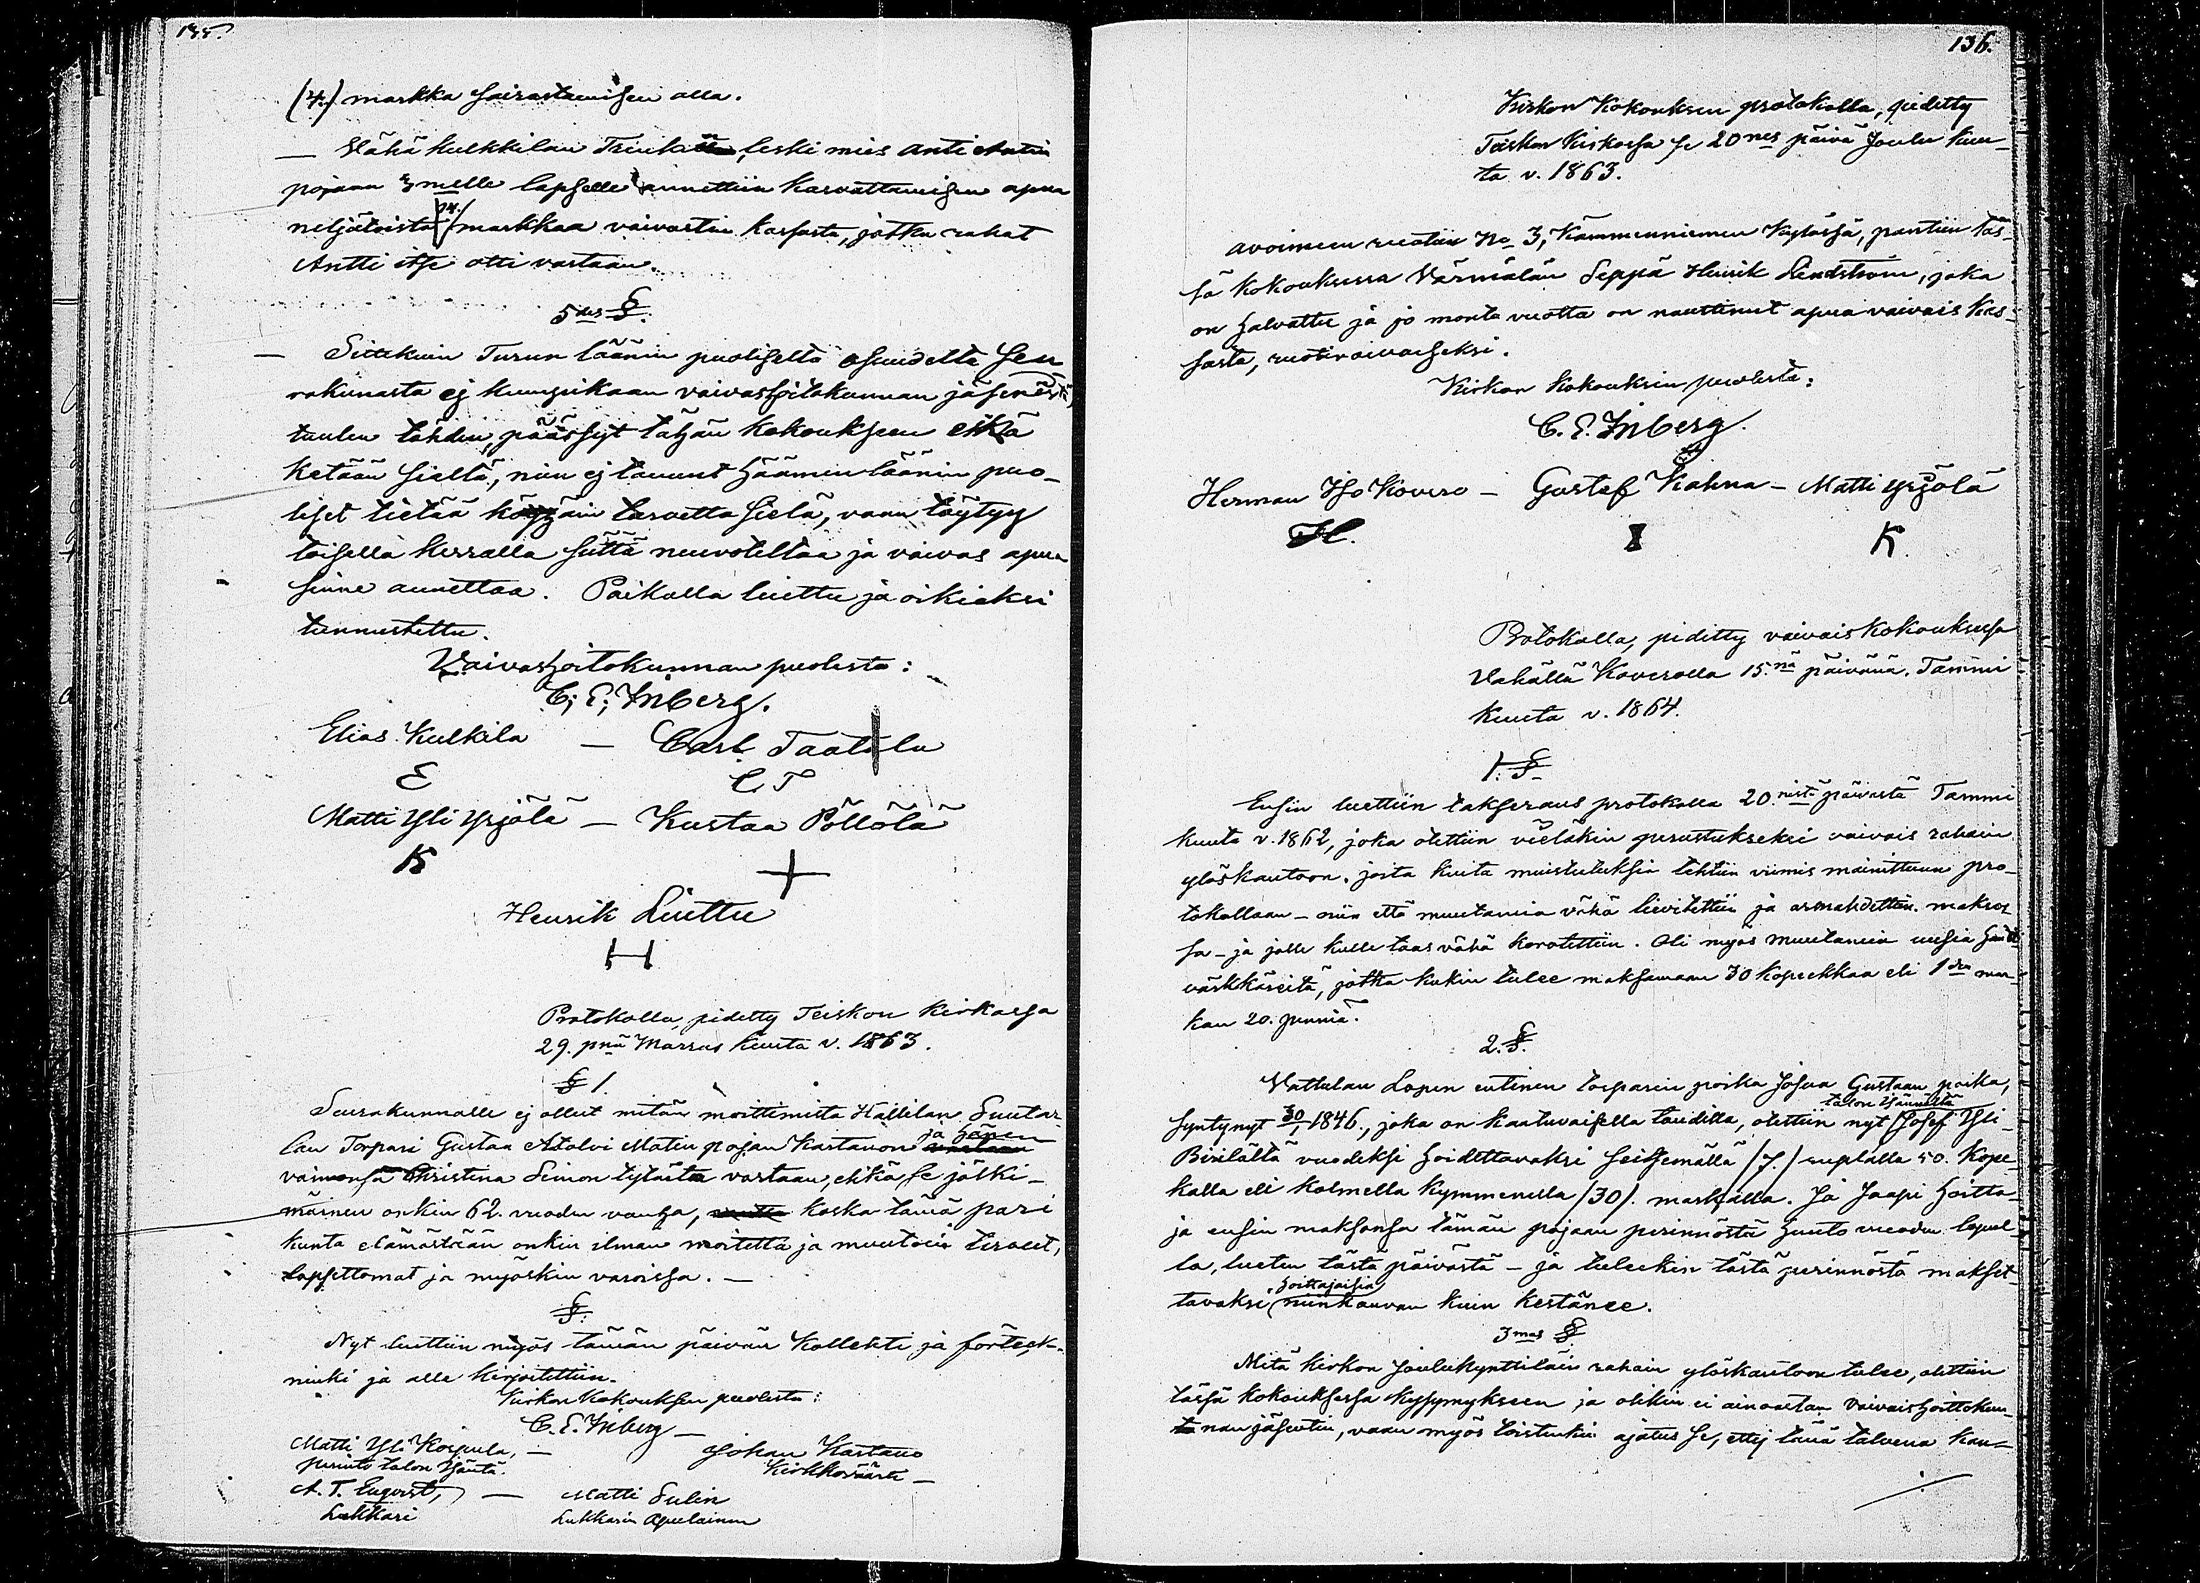 135.
(4.) markka sairastamisen alla.
— Vähä Kulkkilan Trenki, leski mies Anti Antin
pojaan 3melle lapselle annettiin Kasvattamisen apua
neljätoista /14./ markkaa vaivastin kassasta, jotka rahat
Antti itse otti vastaan.
5des §.
— Sittekuin Turun läänin puoliselta osuudelta Seu
rakunasta ej kungikaan vaivashoitokunnan jäsenistä,
tuulen tähden, päässyt tähän Kokoukseen eikä
ketään sieltä, niin ej taunut Häämenläänin puo-
liset tietää köyhäin tarvetta sielä, vaan täytyy
toisella kerralla siittä neuvoteltaa ja vaivas apua
sinne annettaa. Paikalla luettu ja oikiaksi
tunnustettu.
Vaivashoitokunnan puolesta:
C; E; Inberg.
Elias Kulkila — Carl Taatila
E C T
Matti Yli Yrjölä — Kustaa Pöllölä
K +
Henrik Liuttu
H
Protokolla, pidetty Teiskon Kirkossa
29. pnä Marras Kuuta v. 1863.
§ 1.
Seurakunnalle ej ollut mitän moittimista Hallilan Suutar-
lan Torpari Gustaa Adolvi Matin pojan Kartanon ja hänen
vaimonsa Christina Simon tytärtä vastaan, ehkä se jälki-
mäinen onkin 62. vuoden vanha, koska tämä pari
kunta elämästään onkin ilman moitetta ja muutoin terveet,
lapsettomat ja myöskin varoissa. —
§.
Nyt luettiin myös tämän päivän Kollehti ja förteck-
ninki ja alle kirjoitettiin.
Kirkon Kokouksen puolesta:
C. E. Inberg —
Matti Yli Korpula, — Johan Kartano
perintö talon Isäntä. Kirkkovärti —
A. T. Enqvist, — Matti Sulin
Lukkari Lukkarin Apulainen
136.
Kirkon Kokouksen protokolla, pidetty
Teiskon Kirkossa se 20nes päivä Joulu kuu-
ta v. 1863.
Avoimeen ruotiin No 3, Kämmenniemen Kylässä, pantiin täs-
sä Kokouksessa Värmälän Seppä Henrik Lindström, joka
on halvattu ja jo monta vuotta on nauttinut apua vaivais Kas-
sasta, ruotivaivaiseksi.
Kirkon Kokouksen puolesta:
C. E. Inberg.
Herman Iso Kovero — Gustaf Kahna — Matti Yrjölä
H. K.
Protokolla, piditty vaivais Kokouksessa
Vähällä Koverolla 15.nä päivänä Tammi
Kuuta v. 1864.
1. §.
Ensin luettiin takseraus protokolla 20.nestä päivästä Tammi
kuuta v. 1862, joka otettiin vieläkin perustukseksi vaivais rahain
ylöskantoon, joita kuita muistutuksia tehtiin viimis mainittuun pro-
tokollaan — niin että muutamia vähä lievitettiin ja armahdettiin maksos-
sa — ja jolle kulle taas vähä korotettiin. Oli myös muutamia uusia
värkkäreitä, jotka kukin tulee maksamaan 30 Kopeekkaa eli 1den mar-
kan 20. penniä.
2. §.
Vattulan Lopen entinen torparin poika Josua Gustaan poika,
syntynyt 1846., joka on kaatuvaisella taudilla, otettiin nyt talon Isännältä Josef Yli-
Pirilältä vuodeksi hoidettavaksi seitsemällä /7./ ruplalla 50. Kope-
kalla eli kolmella kymmenella /30/. markalla. Ja Jaapi hoitta-
ja ensin maksonsa tämän pojaan perinnöstä Huuto vuoden lopul-
la, lueten tästä päivästä — ja tuleekin tästä perinnöstä makset-
tavaksi hoittajaisia niinkauvan kuin kestänee.
3mas §
Mitä kirkon Joulukynttiläin rahain ylöskantoon tulee, otettiin
tässä kokouksessa kysymykseen ja olikin ei ainoastan Vaivaishoittokun-
nan jäsentin, vaan myös toistenkin ajatus se, ettej tänä talvena kan-